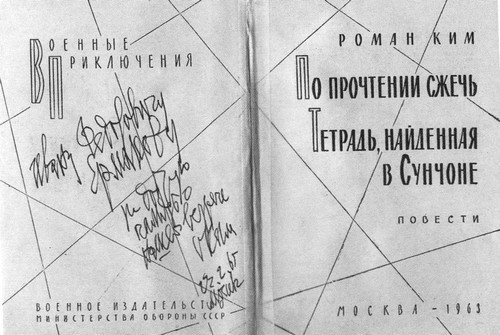 ВОЕННЫЕ
ПРИКЛЮЧЕНИЯ
Ивану Федоровичу
Ермакову
ВОЕННОЕ ИЗДАТЕЛЬСТВО
МИНИСТЕРСТВА ОБОРОНЫ СССР
РОМАН КИМ
ПО ПРОЧТЕНИИ СЖЕЧЬ
ТЕТРАДЬ, НАЙДЕННАЯ
В СУНЧОНЕ
ПОВЕСТИ
МОСКВА – 1963